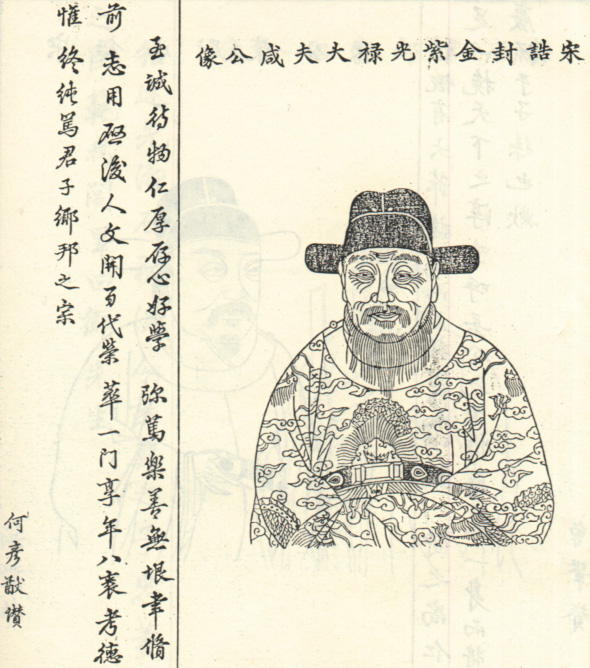 宋誥封金紫光禄大夫咸公像
至誠待物仁厚存心好學弥篤樂善無垠聿脩
前志用啓後人文開百代榮萃一门享年八袠考德
惟终纯篤君子鄉邦之宗
何彦猷讃